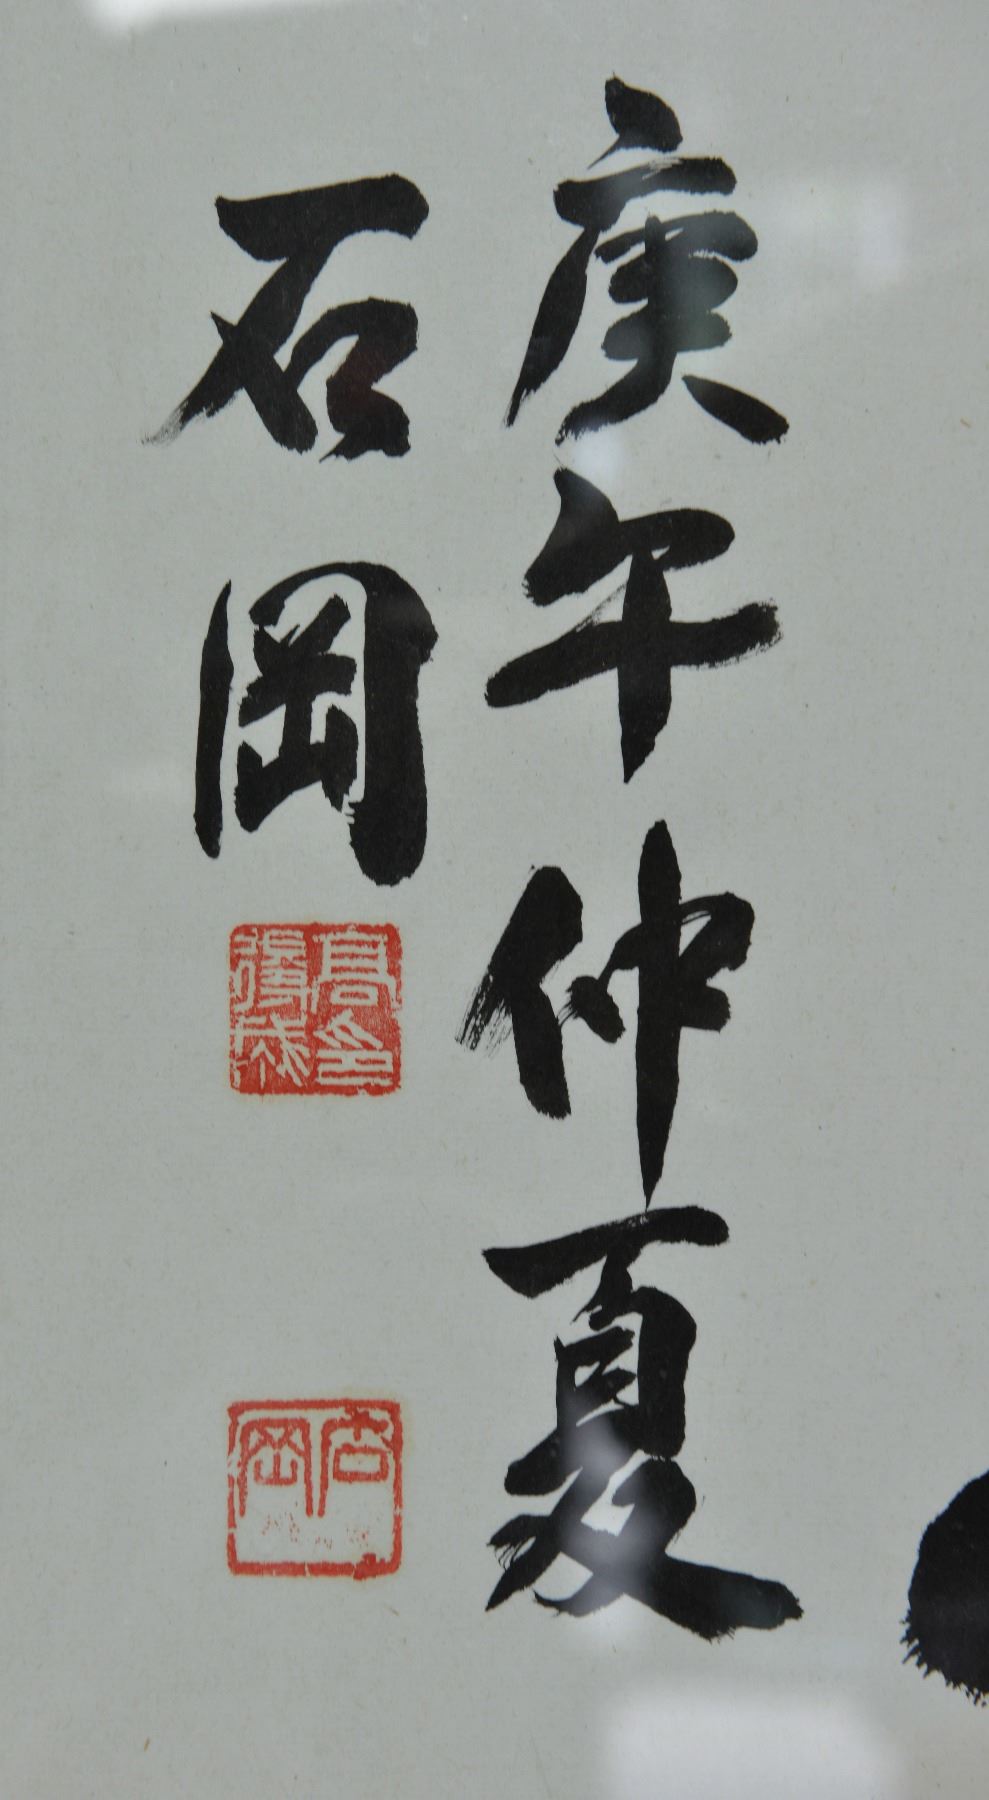 庚午仲夏
石岡
石岡